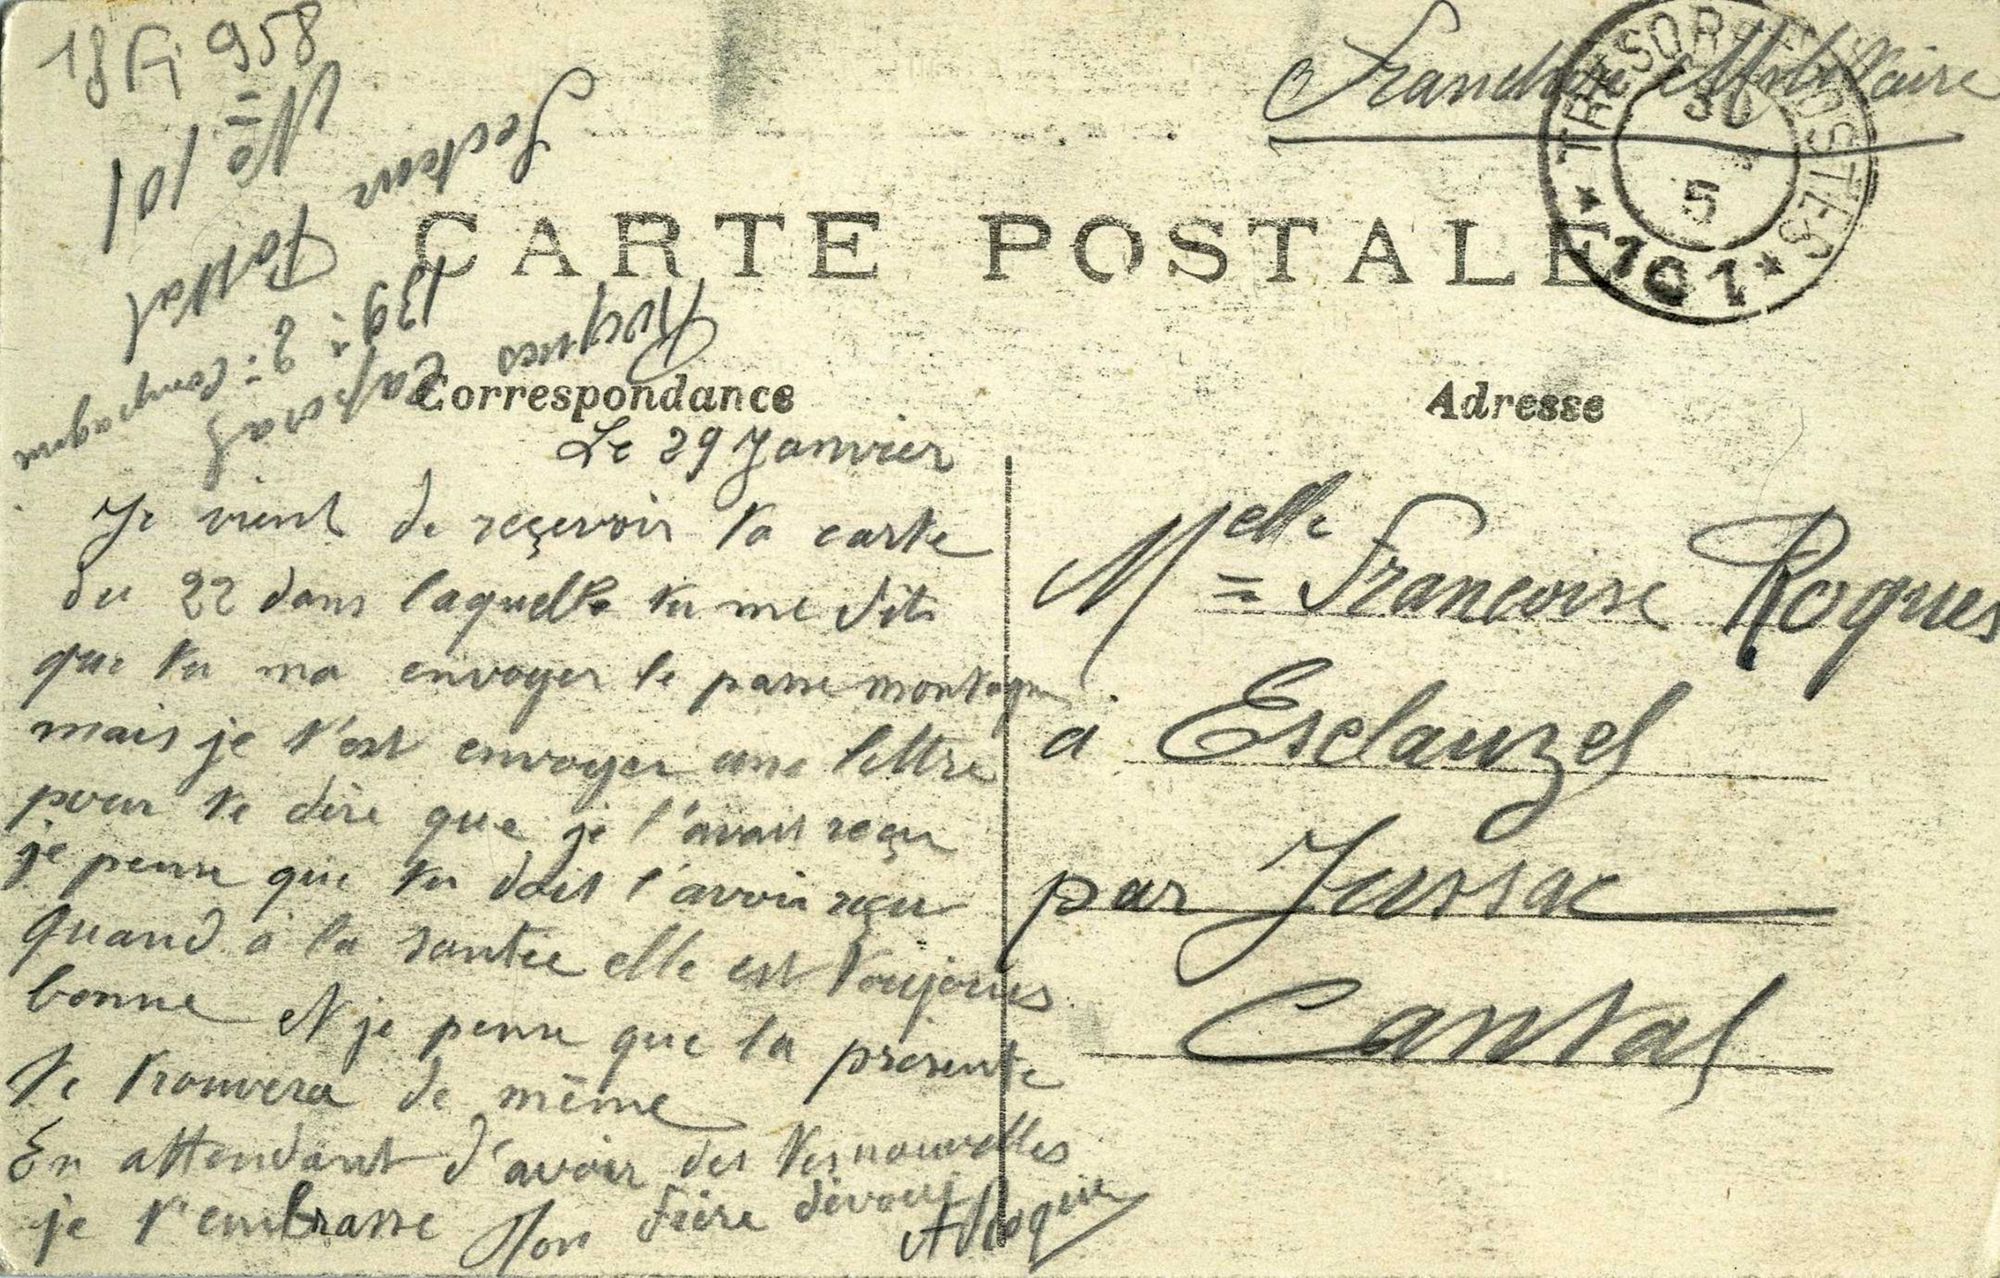 18 Fi 958
Franchise Militaire
TRESOR ET POSTES
30
5
* 101 *
CARTE POSTALE
Roques Caporal
139e 2e Compagnie
Secteur Postal
No 101
Correspondance
Adresse
Le 29 Janvier
Je vient de reçevoir ta carte
du 22 dans laquelle tu me dits
que tu ma envoyer le passe montagne
mais je t'est envoyer une lettre
pour te dire que je l'avais reçu
je pense que tu doit l'avoir reçu
quand à la santée elle est toujours
bonne et je pense que la présente
te trouvera de même
En attendant d'avoir des tes nouvelles
je t'embrasse Ton frère dévoué
A Roques
Melle Francoise Roques
à Esclauzel
par Jussac
Cantal